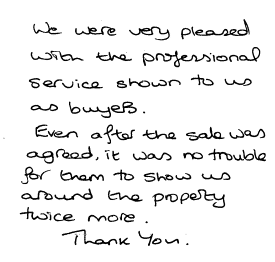 We were very pleased
with the professional
service shown to us
as buyers.
Even after the sale was
agreed, it was no trouble
for them to show us
around the property
twice more.
Thank You.